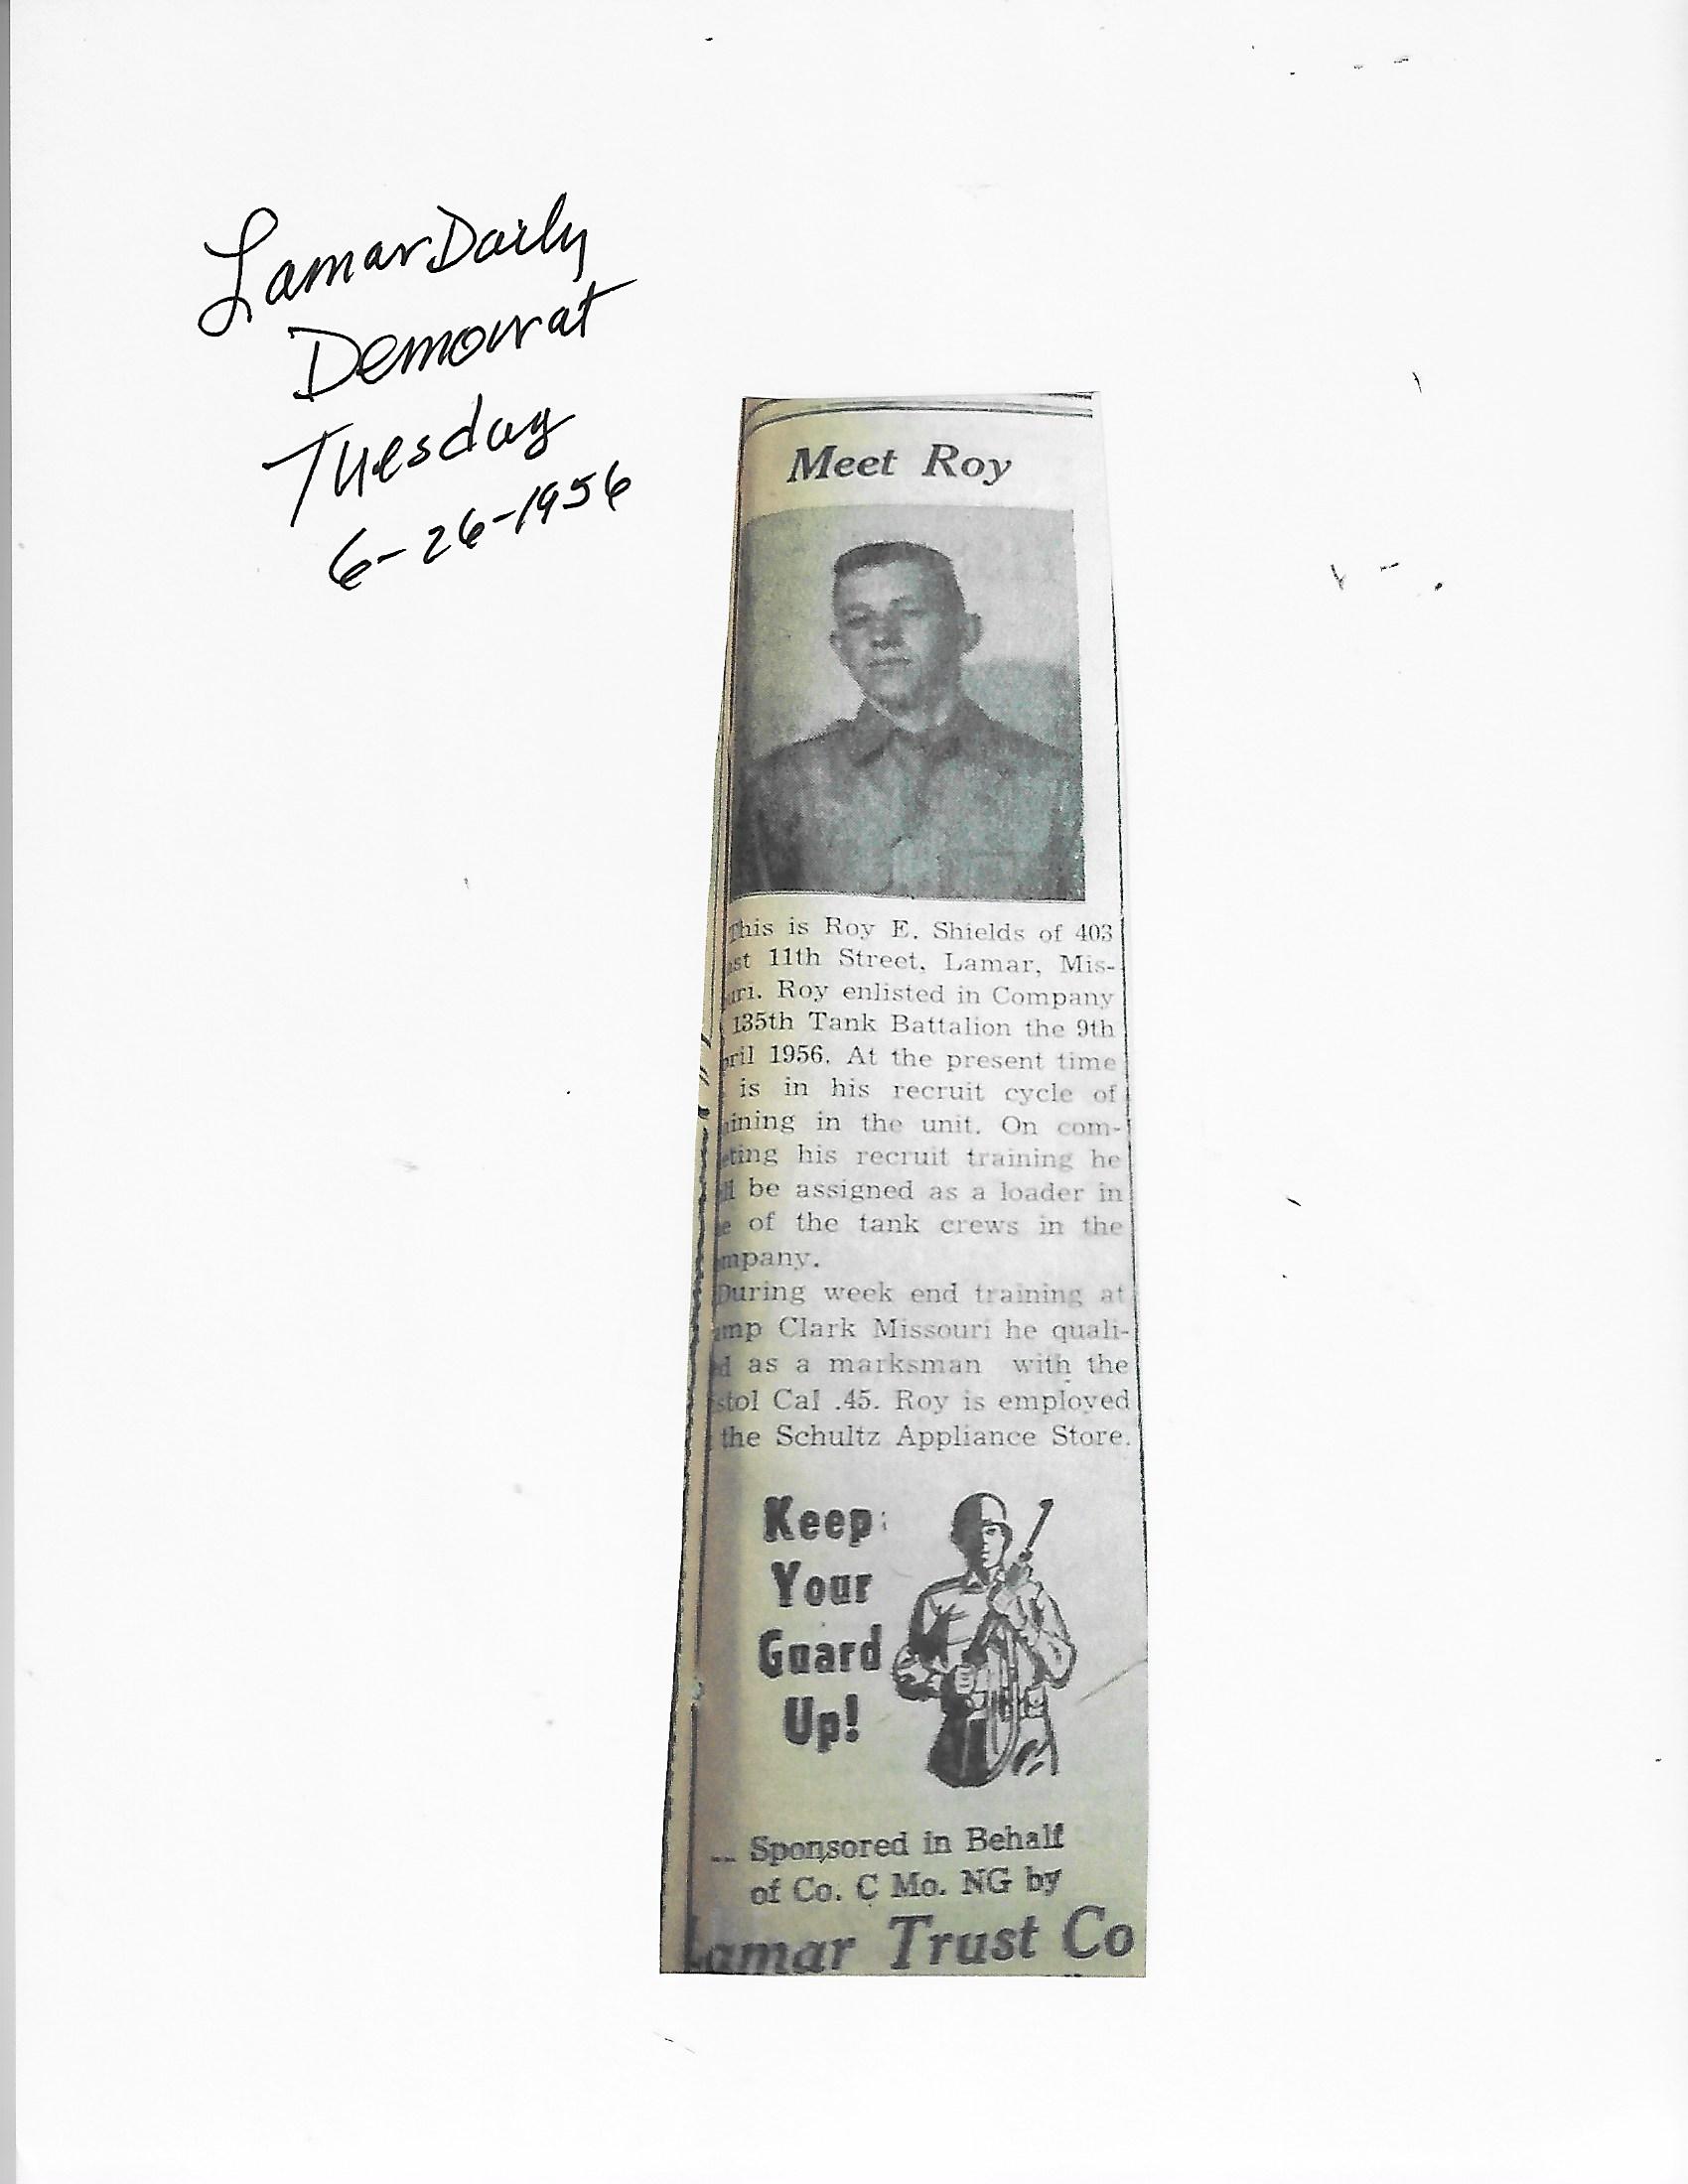 Lamar Daily
Democrat
Tuesday
6-26-1956
Meet Roy
This is Roy E. Shields of 403
ast 11th Street, Lamar, Mis-
uri. Roy enlisted in Company
135th Tank Battalion the 9th
pril 1956. At the present time
is in his recruit cycle of
ining in the unit. On com-
eting his recruit training he
ll be assigned as a loader in
e of the tank crews in the
mpany.
During week end training at
amp Clark Missouri he quali-
d as a marksman with the
stol Cal .45. Roy is employed
the Schultz Appliance Store.
Keep
Your
Guard
Up!
-- Sponsored in Behalf
of Co. C Mo. NG by
Lamar Trust Co